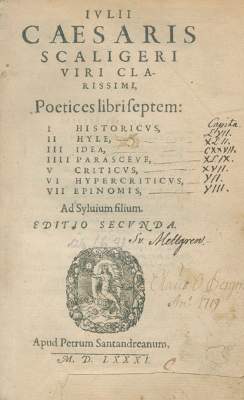 IVLII
CAESARIS
SCALIGERI
VIRI CLA-
RISSIMI,
Poetices libri septem:
Capita
I HISTORICVS, LVII.
II HYLE, XLII.
III IDEA, CXXVII.
IIII PARASCEVE, XLIX.
V CRITICVS, XVII.
VI HYPERCRITICVS, VII.
VII EPINOMIS, VIII.
Ad Syluium filium.
EDITIO SECVNDA.
Sv. Mellgren.
1719
Apud Petrum Santandreanum,
M. D. LXXXI.